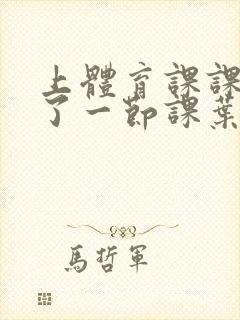 上體育課課
了一節課葉
馬哲軍